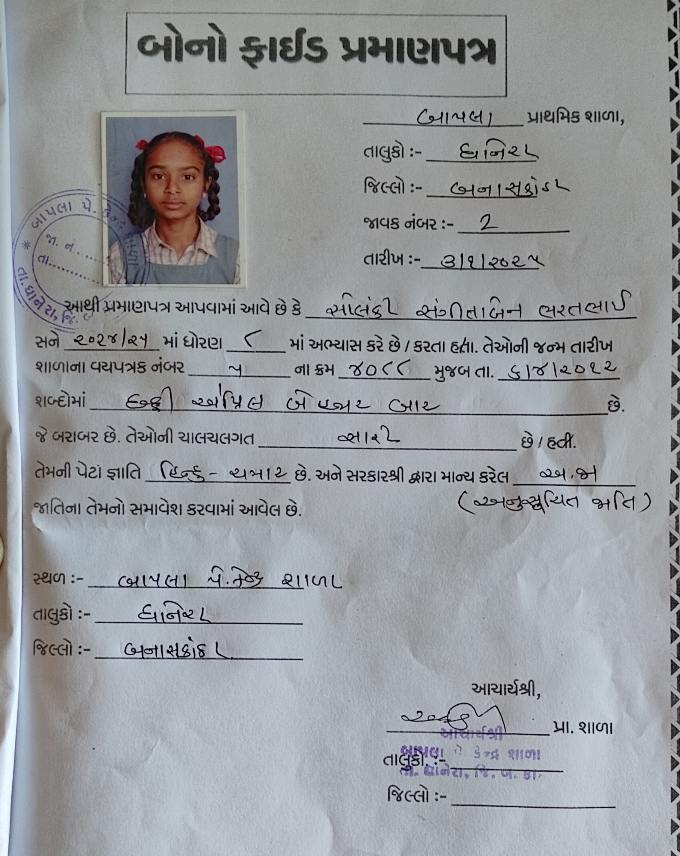 બોનો ફાઈડ પ્રમાણપત્ર
બાપલા પ્રાથમિક શાળા,
તાલુકો :- ધાનેરા
જિલ્લો :- બનાસકાંઠા
જાવક નંબર :- 2
તારીખ :- ૩/૧/૨૦૨૫
આથી પ્રમાણપત્ર આપવામાં આવે છે કે સોલંકી સંગીતાબેન ભરતભાઈ
સને ૨૦૨૪/૨૫ માં ધોરણ ૮ માં અભ્યાસ કરે છે / કરતા હતા. તેઓની જન્મ તારીખ
શાળાના વયપત્રક નંબર ૫ ના ક્રમ ૪૦૮૮ મુજબ તા. ૬/૪/૨૦૧૨
શબ્દોમાં છઠ્ઠી એપ્રિલ બે હજાર બાર છે.
જે બરાબર છે. તેઓની ચાલચલગત સારી છે / હતી.
તેમની પેટા જ્ઞાતિ હિન્દુ - ચમાર છે. અને સરકારશ્રી દ્વારા માન્ય કરેલ અ.જા
(અનુસૂચિત જાતિ)
જાતિના તેમનો સમાવેશ કરવામાં આવેલ છે.
સ્થળ :- બાપલા પે.કેન્દ્ર શાળા
તાલુકો :- ધાનેરા
જિલ્લો :- બનાસકાંઠા
આચાર્યશ્રી,
પ્રા. શાળા
આચાર્યશ્રી
બાપલા પે કેન્દ્ર શાળા
તાલુકો :-
તા. ધાનેરા, જિ. બ. કાં.
જિલ્લો :-